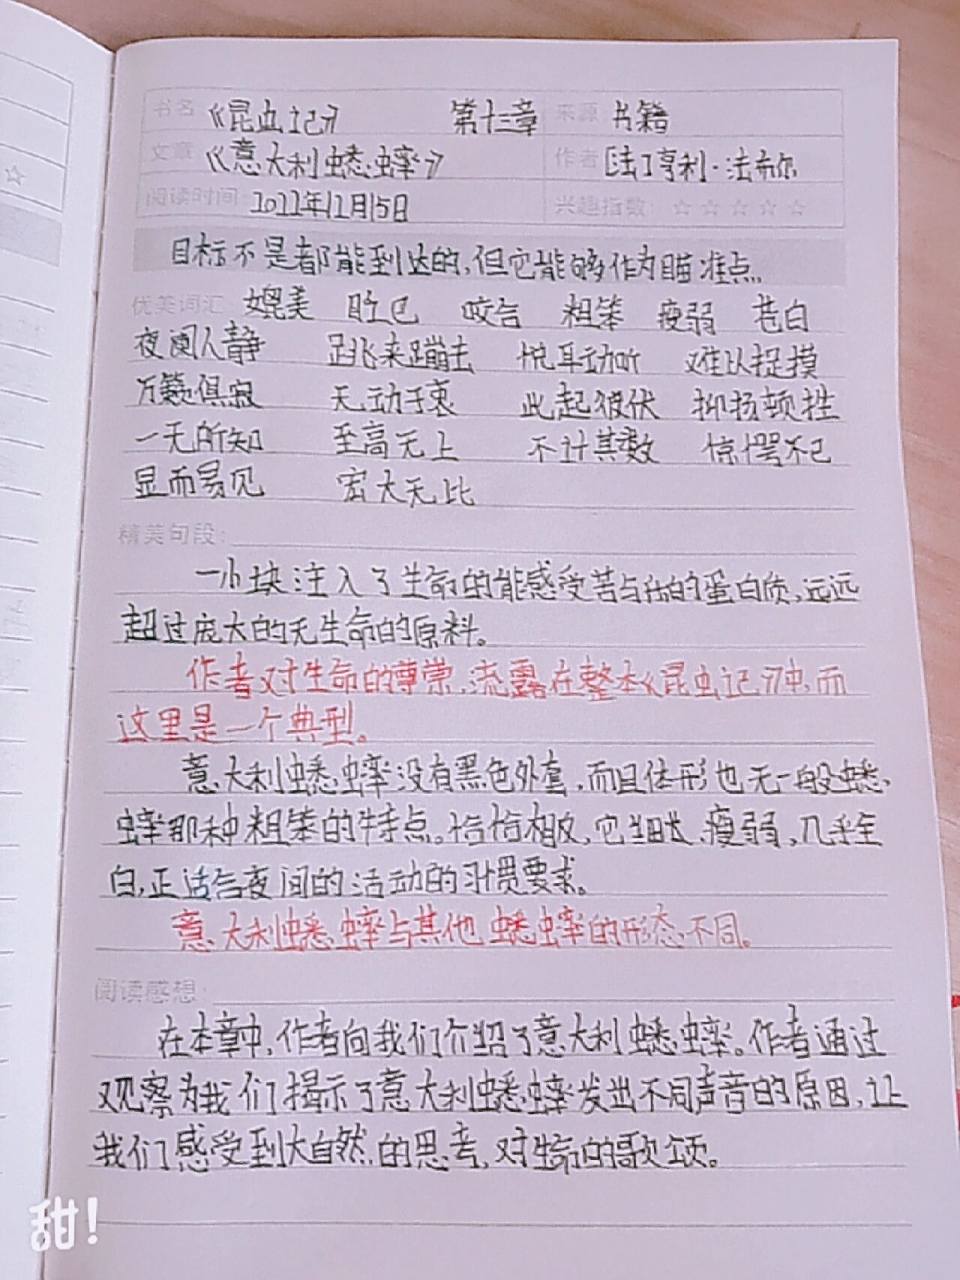 书名 《昆虫记》 第十三章 来源 书籍
文章 《意大利蟋蟀》 作者 [法]亨利·法布尔
阅读时间: 2022年12月15日 兴趣指数: ☆☆☆☆☆
目标不是都能到达的,但它能够作为瞄准点。
优美词汇 媲美 咬合 粗笨 瘦弱 苍白
夜阑人静 跳来蹦去 悦耳动听 难以捉摸
万籁俱寂 无动于衷 此起彼伏 抑扬顿挫
一无所知 至高无上 不计其数 惊愕不已
显而易见 宏大无比
精美句段:
一小块注入了生命的能感受苦与乐的蛋白质,远远
超过庞大的无生命的原料。
作者对生命的尊崇,流露在整本《昆虫记》中,而
这里是一个典型。
意大利蟋蟀没有黑色外套,而且体形也无一般蟋
蟀那种粗笨的特点。恰恰相反,它细长、瘦弱,几乎全
白,正适合夜间的活动的习惯要求。
意大利蟋蟀与其他蟋蟀的形态不同。
阅读感想:
在本章中,作者向我们介绍了意大利蟋蟀。作者通过
观察为我们揭示了意大利蟋蟀发出不同声音的原因,让
我们感受到大自然的思考,对生命的歌颂。
甜!